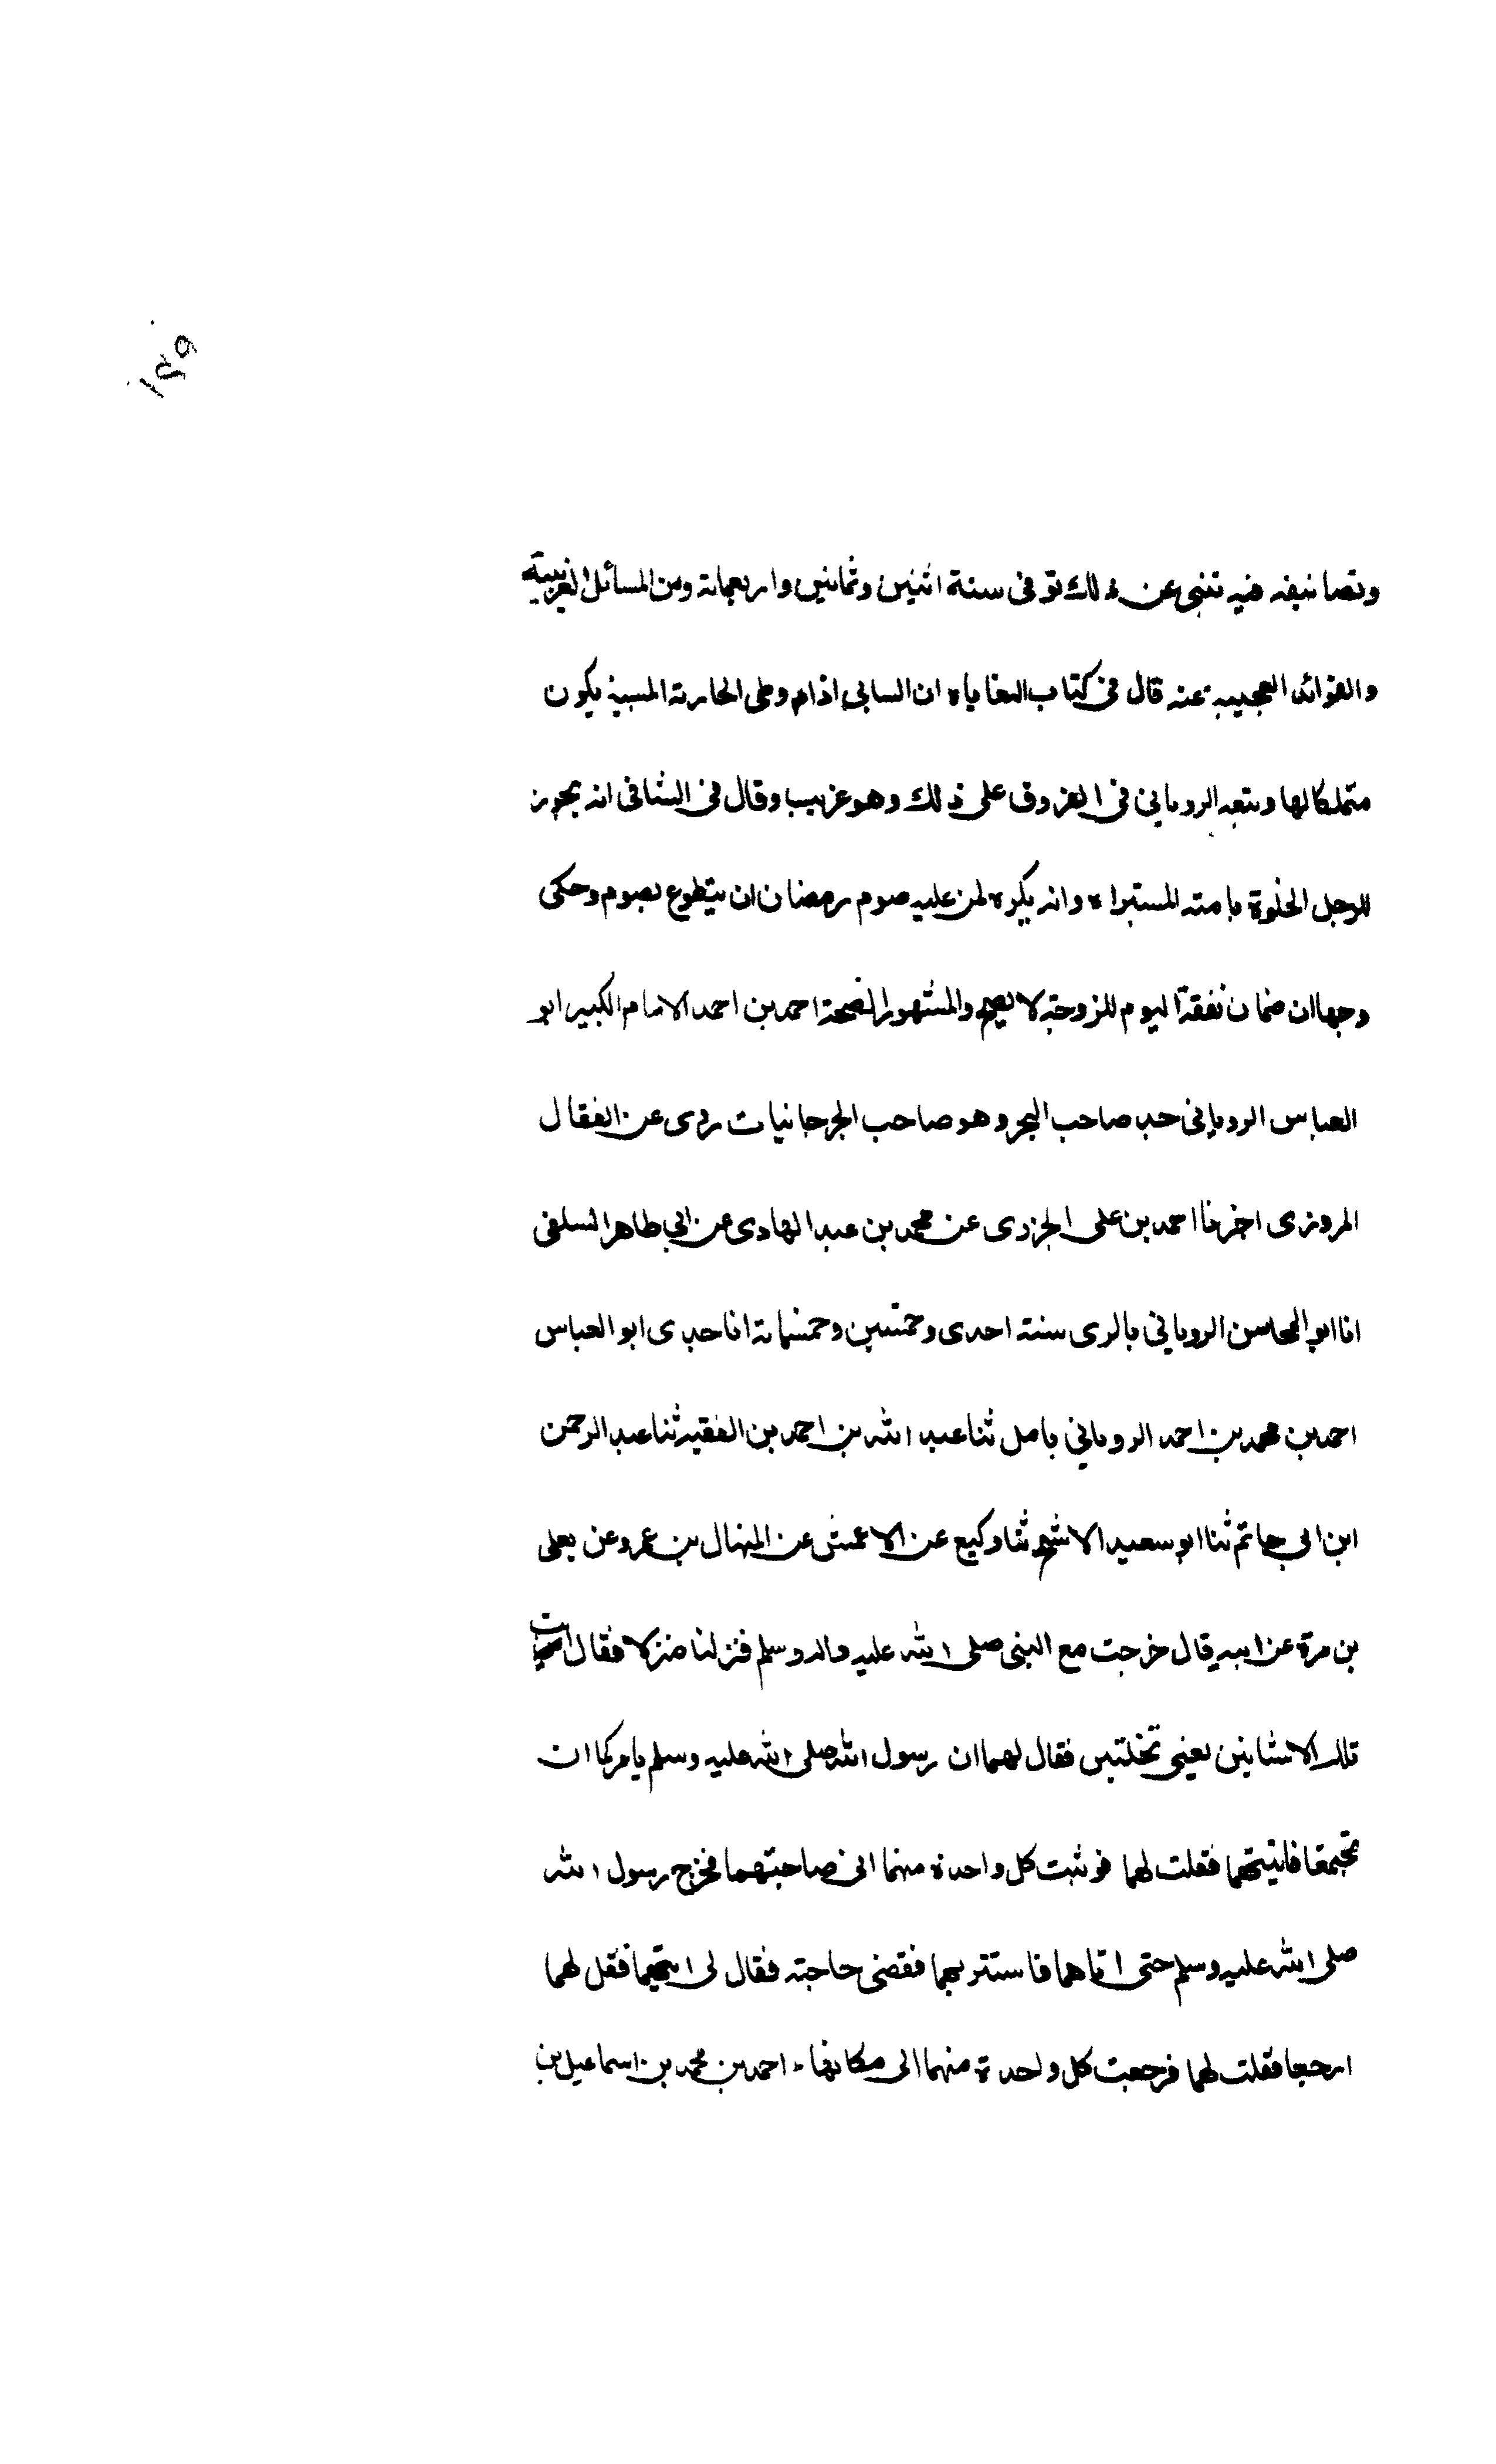 وتصانيفه فيه تنبى عن ذلك توفى سنة اثنين وثمانين واربعماية ومن المسائل الغريبة
والفوائد العجيبة عنه قال فى كتاب المعاياه ان السابى اذا وطى الجارية المسبية يكون
متملكا لها وتبعه الرويانى فى الفروق على ذلك وهو غريب وقال فى الشافى انه يجوز
للرجل الخلوة بامته المستبراه وانه يكره لمن عليه صوم رمضان ان يتطوع بصوم وحكى
وجها ان ضمان نفقة اليوم للزوجة لا يصح والمشهور الصحة احمد بن احمد الامام الكبير ابو
العباس الرويانى جد صاحب البحر وهو صاحب الجرجانيات روى عن القفال
المروزى اخبرنا احمد بن على الجزرى عن محمد بن عبد الهادى عن ابى طاهر السلفى
انا ابو المحاسن الرويانى بالرى سنة احدى وخمسين وخمسماية انا جدى ابو العباس
احمد بن محمد بن احمد الرويانى بامل ثنا عبد الله بن احمد بن الفقيه ثنا عبد الرحمن
ابن ابى حاتم ثنا ابو سعيد الاشج ثنا وكيع عن الاعمش عن المنهال بن عمرو عن يعلى
بن مرة عن ابيه قال خرجت مع النبى صلى الله عليه واله وسلم فنزلنا منزلا فقال ايت
تلك الاشايتين يعنى نخلتين فقال لهما ان رسول الله صلى الله عليه وسلم يامركما ان
تجتمعا فاتيتهما فقلت لهما فوثبت كل واحدة منهما الى صاحبتهما فخرج رسول الله
صلى الله عليه وسلم حتى اتاهما فاستتر بهما فقضى حاجته فقال لى ايتهما فقل لهما
ارجعا فقلت لهما فرجعت كل واحدة منهما الى مكانها احمد بن محمد بن اسماعيل بن